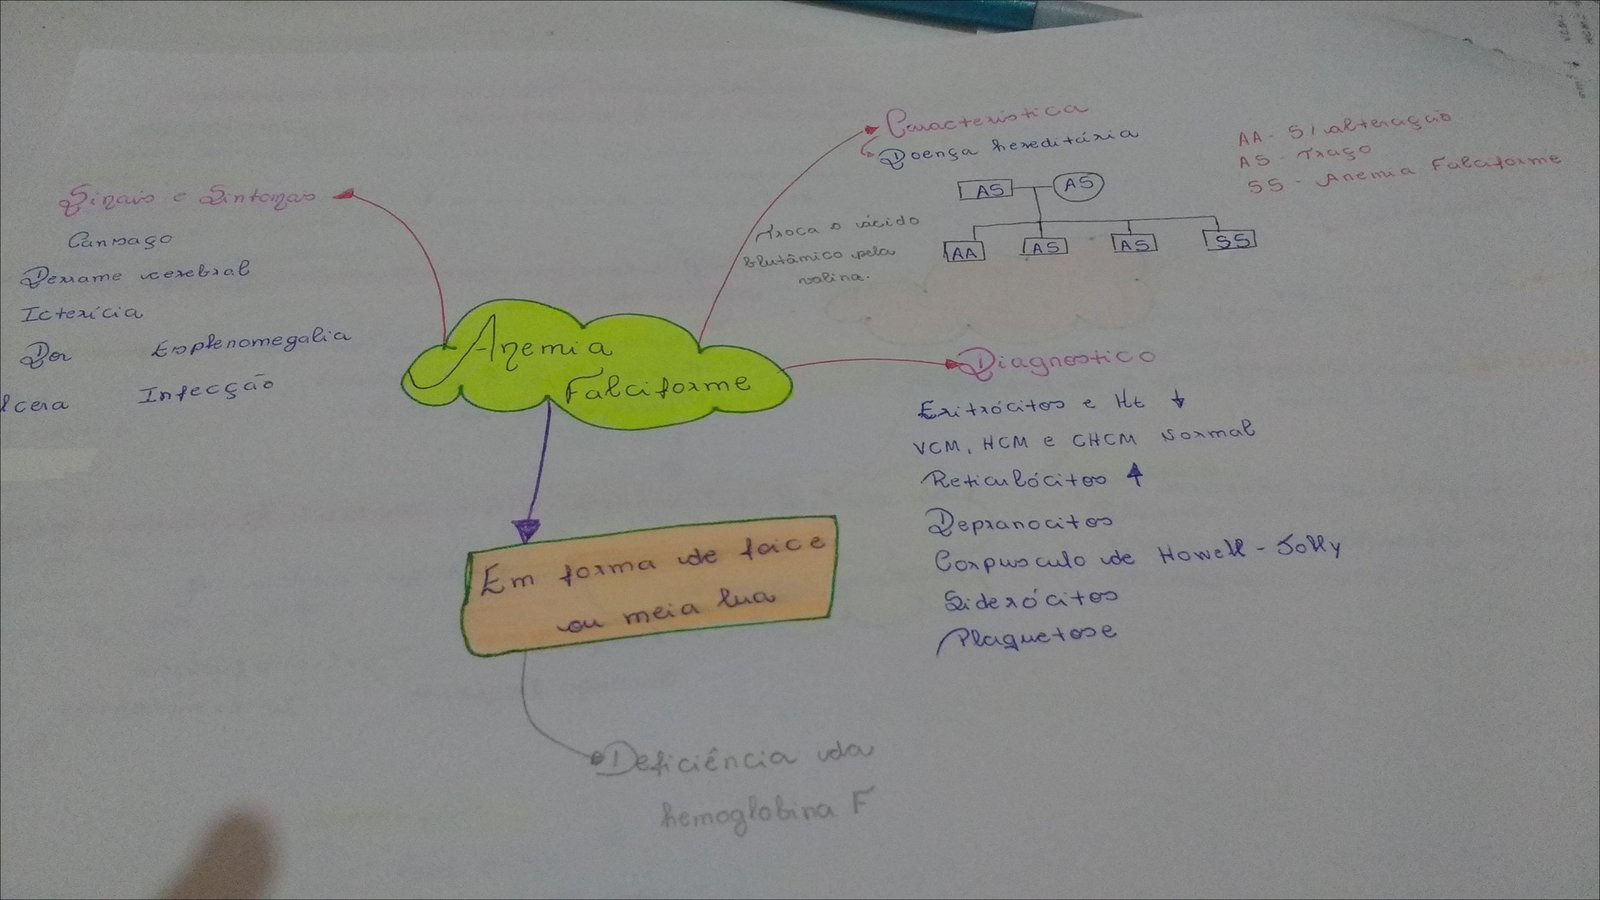 Anemia
Falciforme
Sinais e Sintomas
Cansaço
Derrame cerebral
Icterícia
Dor Esplenomegalia
lcera Infecção
Característica
Doença hereditária
AS AS
AA AS AS SS
Troca o ácido
Glutâmico pela
valina.
AA - S/ alteração
AS - Traço
SS - Anemia Falciforme
Diagnostico
Eritrócitos e Ht ↓
VCM, HCM e CHCM Normal
Reticulócitos ↑
Depranocitos
Corpusculo de Howell - Jolly
Siderócitos
Plaquetose
Em forma de foice
ou meia lua
Deficiência da
hemoglobina F